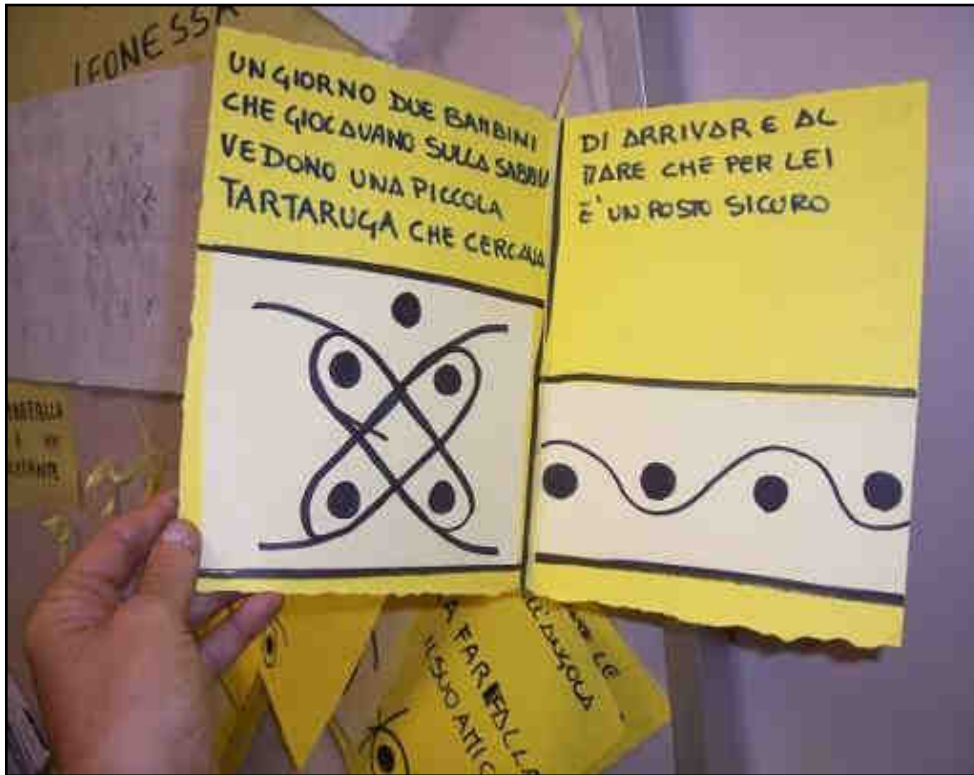 LEONESSA
UN GIORNO DUE BAMBINI
CHE GIOCAVANO SULLA SABBIA
VEDONO UNA PICCOLA
TARTARUGA CHE CERCAVA
DI ARRIVARE AL
MARE CHE PER LEI
E' UN POSTO SICURO
FARFALLA
IL SUO